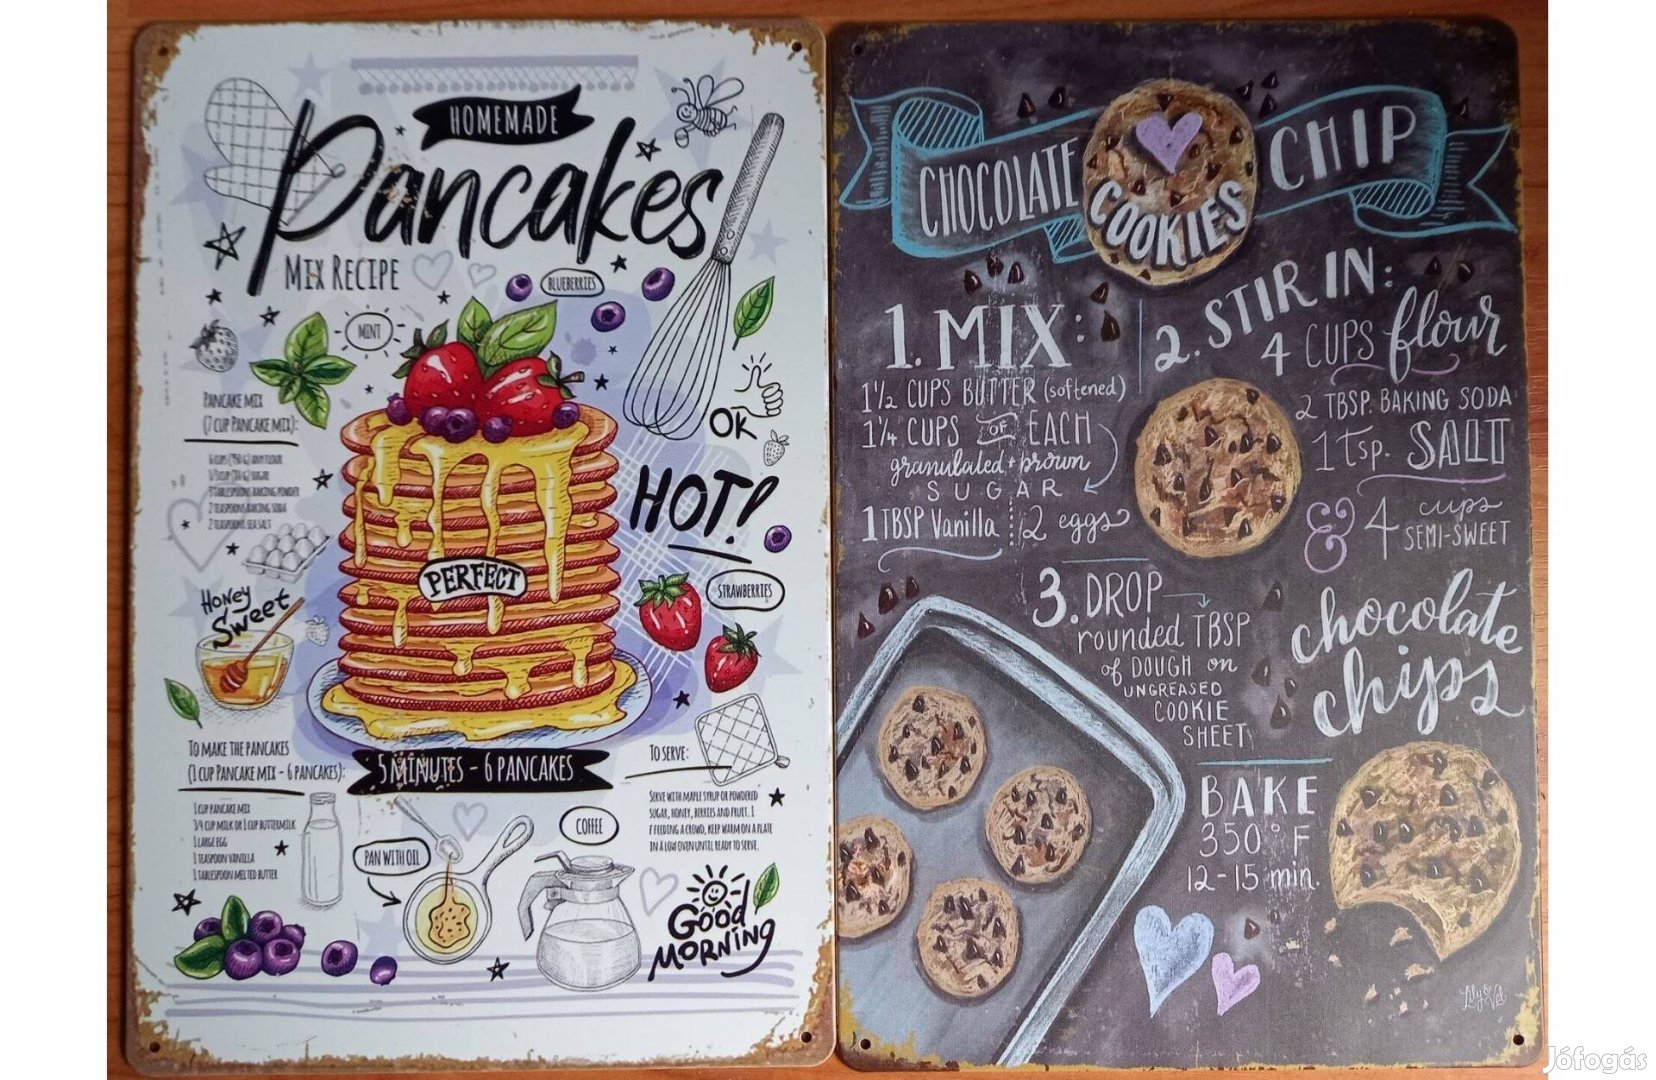 HOMEMADE
Pancakes
MIX RECIPE
BLUEBERRIES
MINT
PANCAKE MIX
(7 CUP PANCAKE MIX):
2 TEASPOONS BAKING SODA
2 TEASPOONS SEA SALT
OK
HOT!
PERFECT
STRAWBERRIES
HONEY
SWEET
TO MAKE THE PANCAKES
(1 CUP PANCAKE MIX - 6 PANCAKES):
1 CUP PANCAKE MIX
3/4 CUP MILK OR 1 CUP BUTTERMILK
1 LARGE EGG
1 TEASPOON VANILLA
1 TABLESPOON MELTED BUTTER
5 MINUTES - 6 PANCAKES
PAN WITH OIL
COFFEE
TO SERVE:
SERVE WITH MAPLE SYRUP OR POWDERED
SUGAR, HONEY, BERRIES AND FRUIT. I
F FEEDING A CROWD, KEEP WARM ON A PLATE
IN A LOW OVEN UNTIL READY TO SERVE.
GOOD
MORNING
CHOCOLATE CHIP
COOKIES
1. MIX:
1 1/2 CUPS BUTTER (softened)
1 1/4 CUPS OF EACH
granulated + brown
SUGAR
1 TBSP Vanilla 2 eggs
2. STIR IN:
4 CUPS flour
2 TBSP. BAKING SODA
1 tsp. SALT
& 4 cups
SEMI-SWEET
chocolate
chips
3. DROP
rounded TBSP
of DOUGH on
UNGREASED
COOKIE
SHEET
BAKE
350° F
12-15 min.
Jófogás